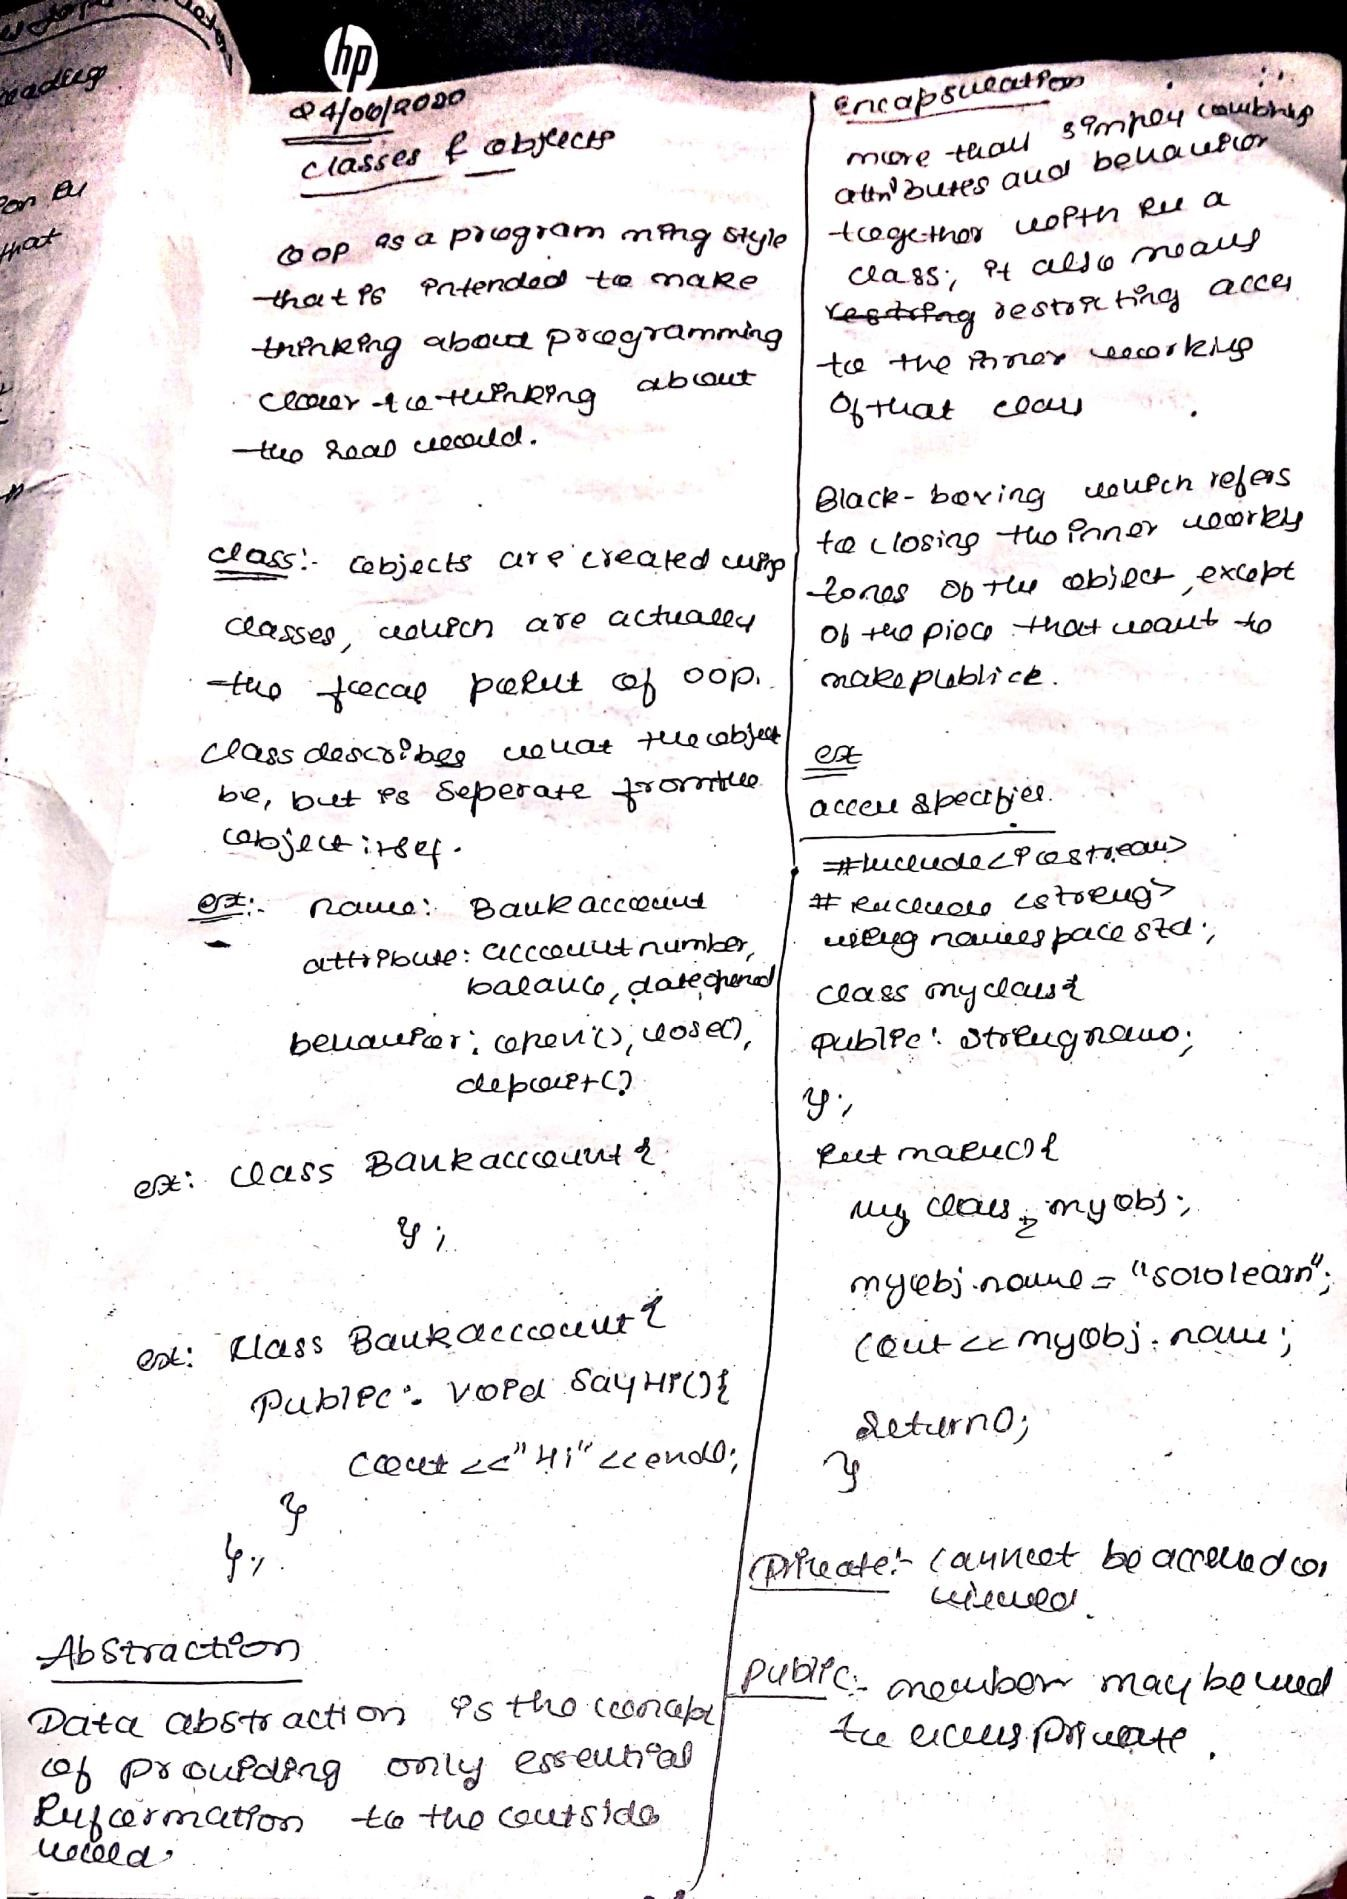 hp
24/06/2020
classes & objects
OOP is a programming style
that is intended to make
thinking about programming
closer to thinking about
the real world.
class:- objects are created using
classes, which are actually
the focal point of OOP.
class describes what the object
be, but is seperate from the
object itsef.
ex:- name: Bank account
attribute: account number,
balance, date opened
behavior: open(), close(),
deposit()
ex: class Bankaccount {
};
ex: class Bankaccount {
Public: void SayHi(){
cout <<"Hi" <<endl;
}
};
Abstraction
Data abstraction is the concept
of providing only essential
information to the outside
world.
encapsulation
more than simply combining
attributes and behavior
together with in a
class; it also means
restricting acces
to the inner working
of that class
Black-boxing which refers
to closing the inner working
zones of the object, except
of the piece that want to
make publick.
ex
access specifier.
#include<iostream>
#include <string>
using namespace std;
class myclass{
Public: string name;
};
int main(){
my class myobj;
myobj.name = "sololearn";
cout << myobj.name;
return 0;
}
Private:- cannot be accessed or
viewed.
Public:- member may be used
to access private.
reading
that